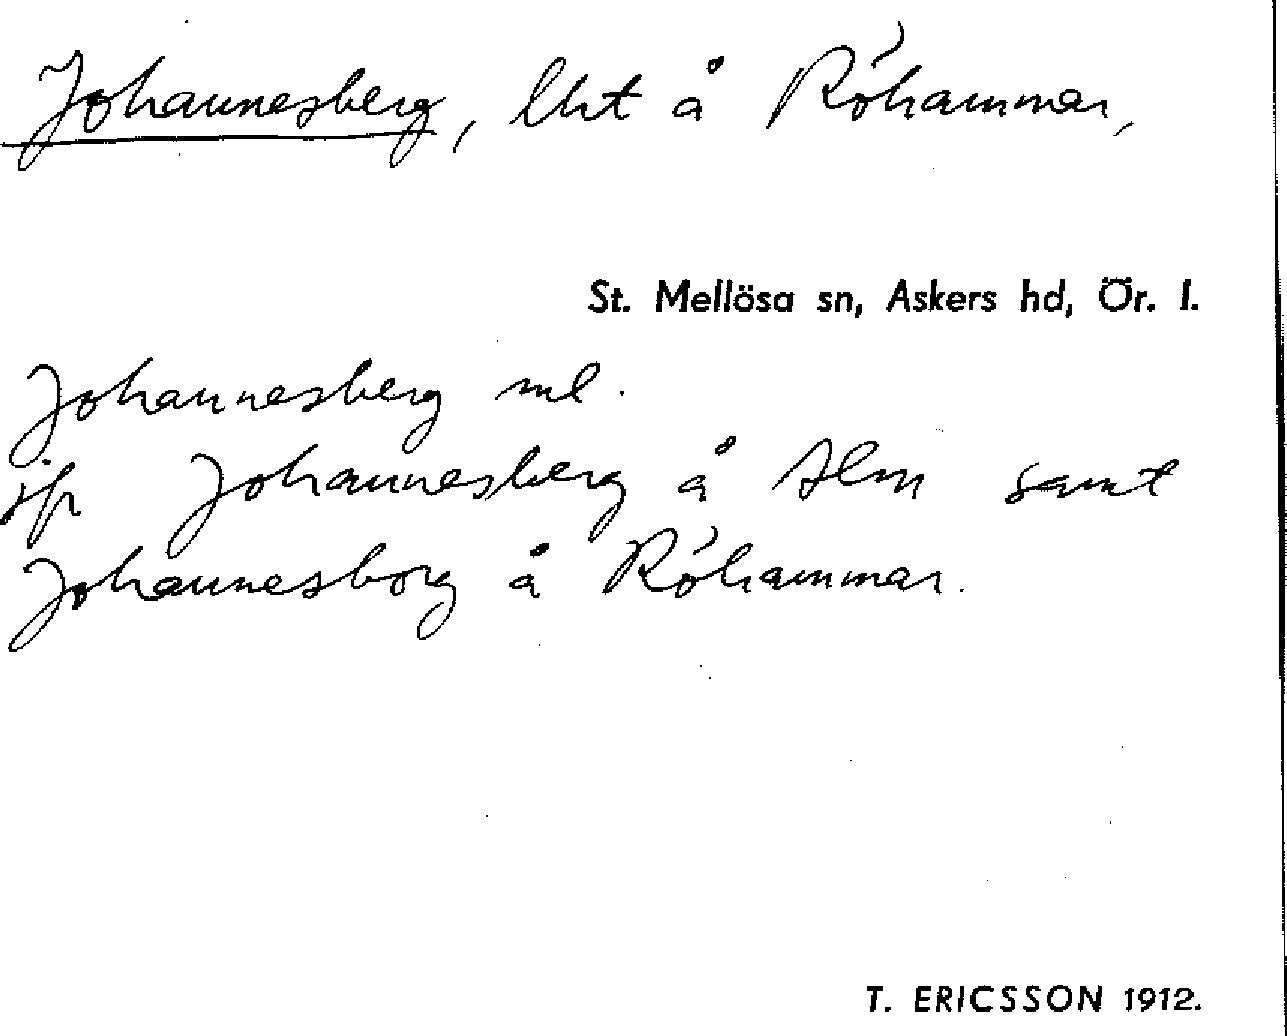 Johannesberg, lht å Röhammar,
St. Mellösa sn, Askers hd, Ör. l.
Johannesberg ml.
jfr Johannesberg å Alm samt
Johannesborg å Röhammar.
T. ERICSSON 1912.